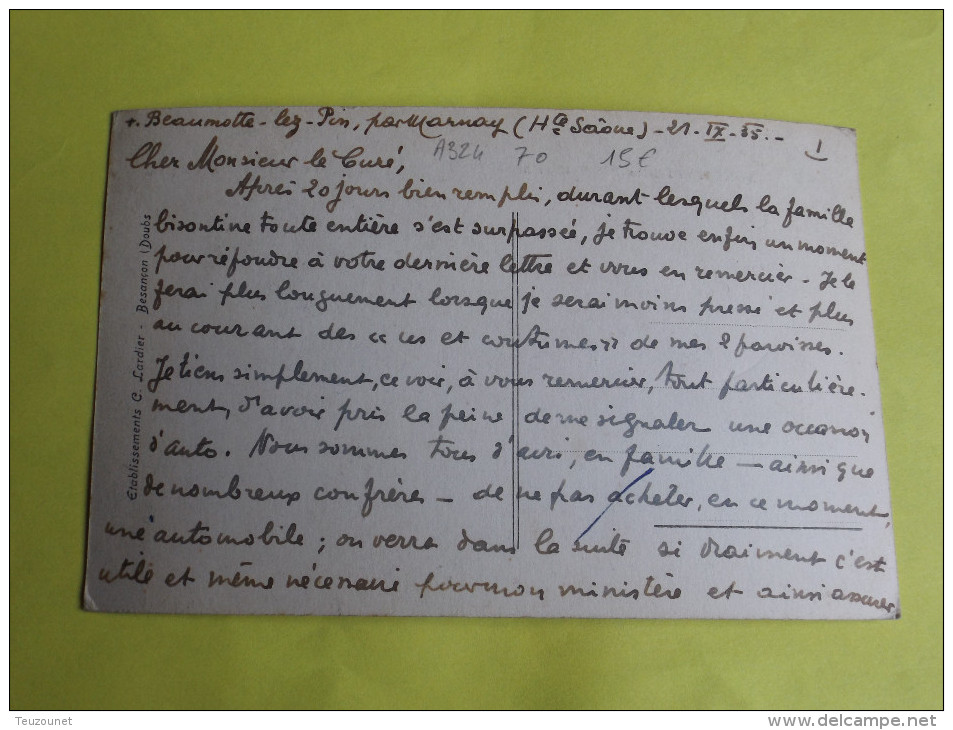 +. Beaumotte-lez-Pin, par Marnay (Hte Saône) - 21. IX. 55. -
I
Cher Monsieur le Curé,
A324 70 15€
Après 20 jours bien remplis, durant lesquels la famille
bisontine toute entière s'est surpassée, je trouve enfin un moment
pour répondre à votre dernière lettre et vous en remercier. Je le
ferai plus longuement lorsque je serai moins pressé et plus
au courant des "us et coutumes" de mes 2 paroisses.
Je tiens simplement, ce soir, à vous remercier, tout particulière-
ment, d'avoir pris la peine de me signaler une occasion
d'auto. Nous sommes tous d'avis, en famille — ainsi que
de nombreux confrères — de ne pas acheter, en ce moment,
une automobile ; on verra dans la suite si vraiment c'est
utile et même nécessaire pour mon ministère et ainsi assurer
Etablissements C. Lardier - Besançon (Doubs
Teuzounet
delcampe.net